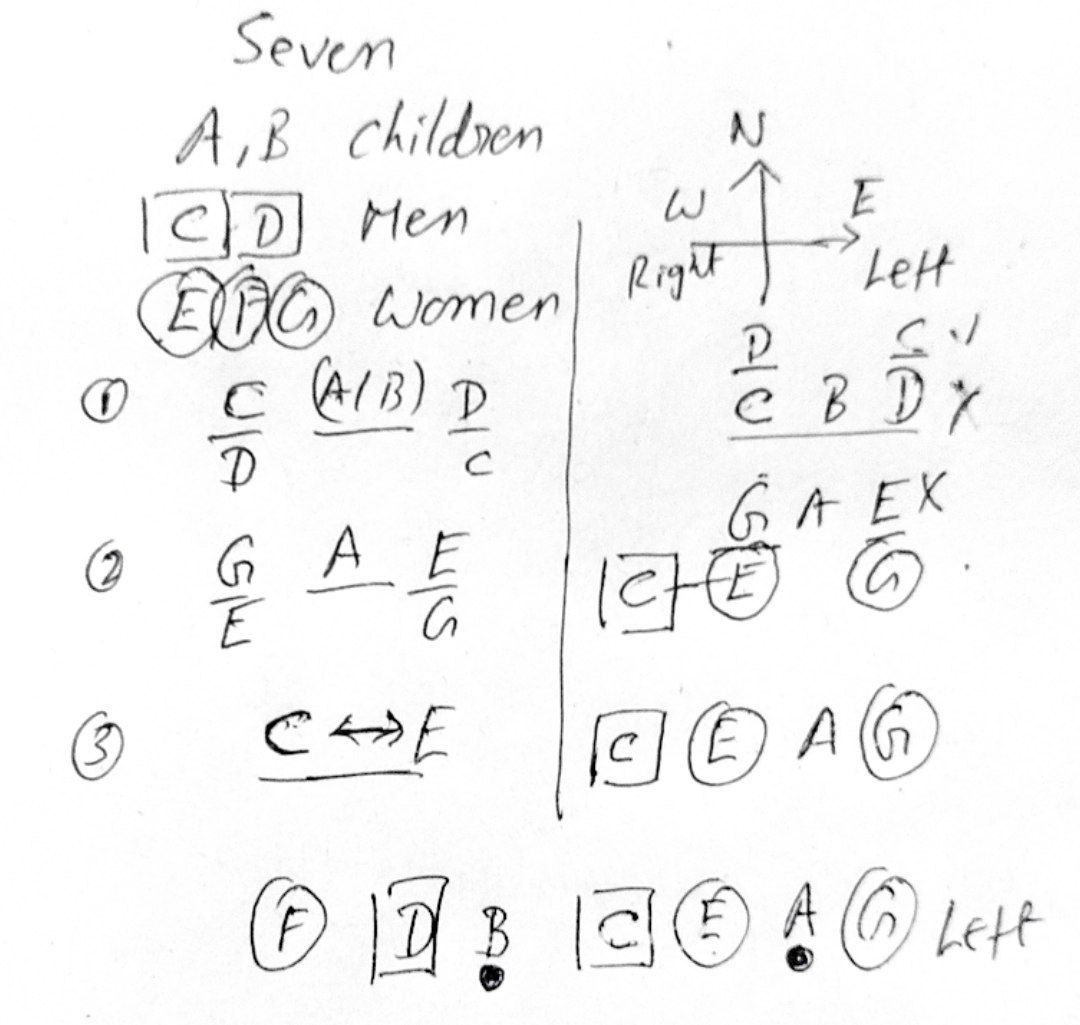 Seven
A, B Children
C D Men
E F G Women
① C (A/B) D
D C
② G A E
E G
③ C ↔ E
N
W E
Right Left
D C ✓
C B D X
G A E X
C E G
C E A G
F D B C E A G Left